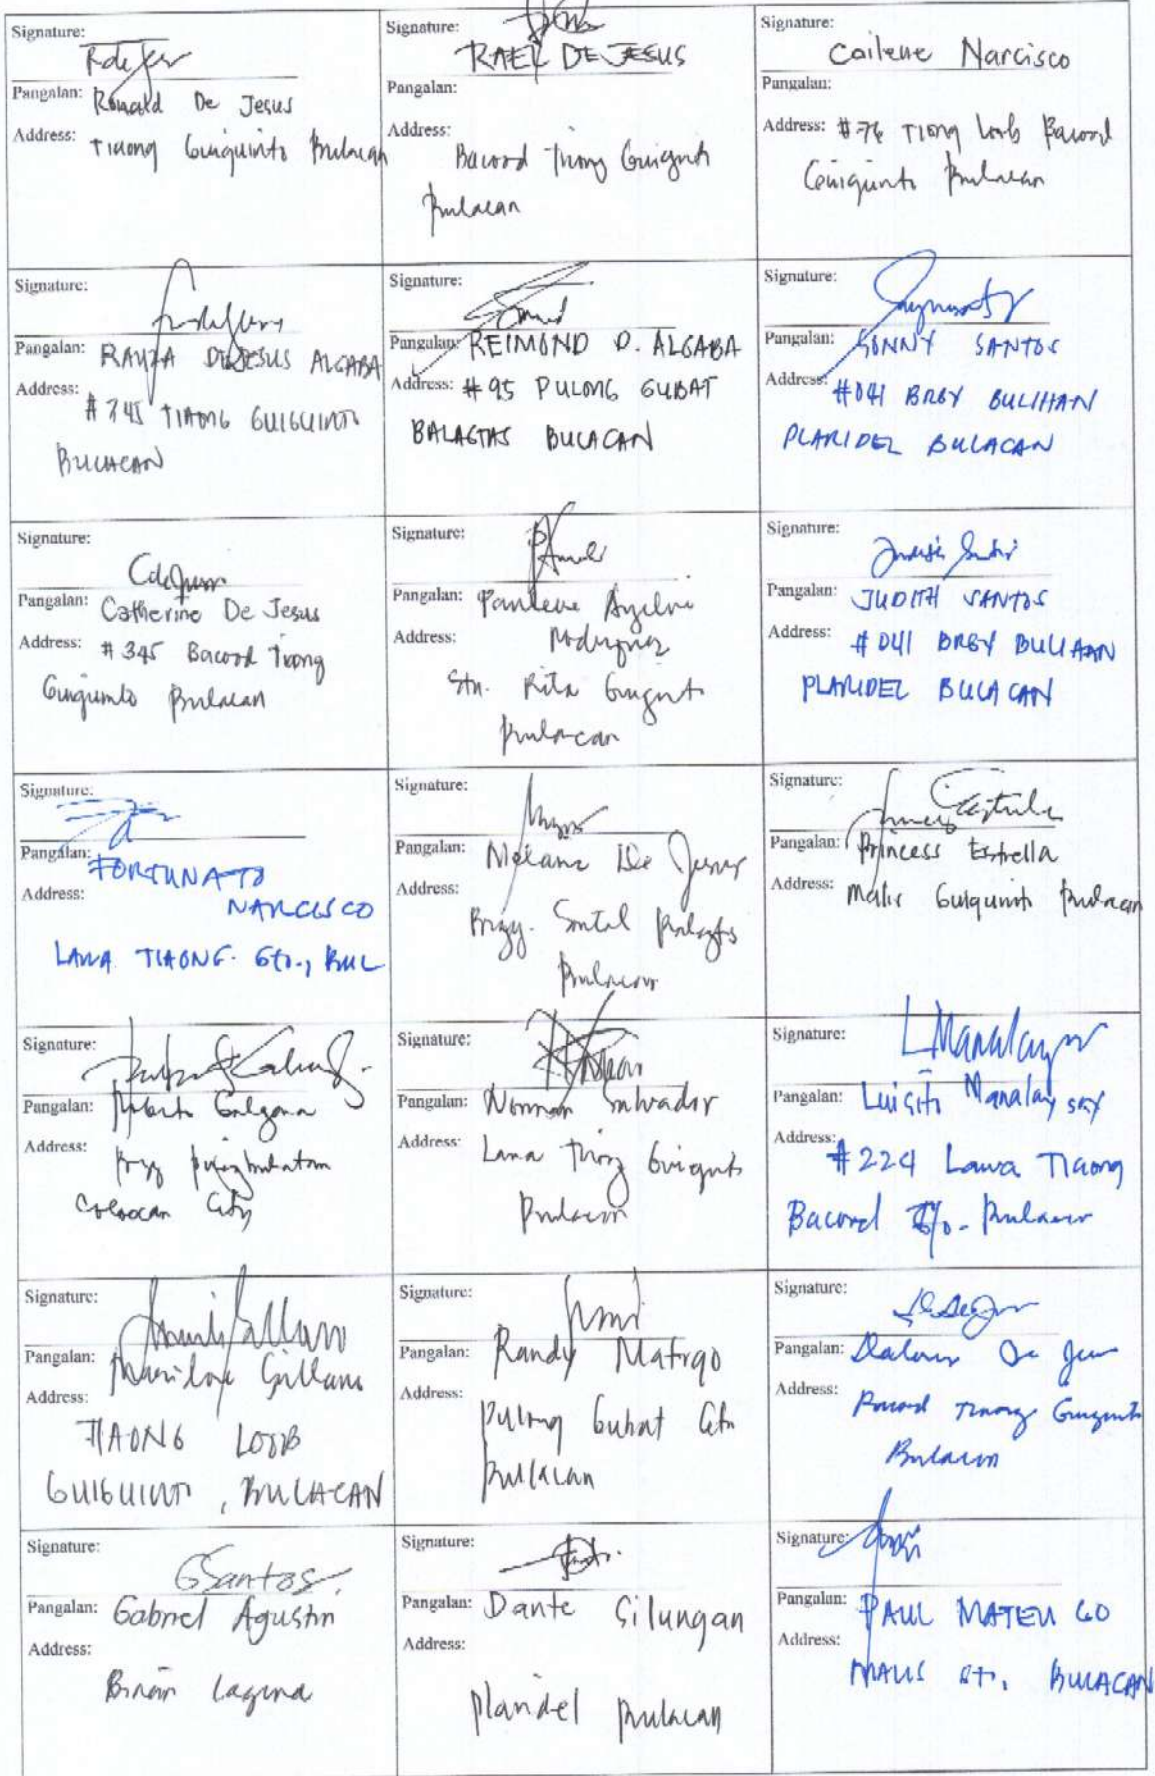 Signature:
Pangalan: Ronald De Jesus
Address: Tiaong Guiguinto Bulacan
Signature:
RAEL DE JESUS
Pangalan:
Address:
Bacood Tiaong Guiguinto
Bulacan
Signature:
Cailene Narcisco
Pangalan:
Address: #76 Tiong Loob Bacood
Guiguinto Bulacan
Signature:
Pangalan: RAYZA DE JESUS ALGABA
Address:
#345 TIAONG GUIGUINTO
BULACAN
Signature:
Pangalan: REIMOND D. ALGABA
Address: #95 PULONG GUBAT
BALAGTAS BULACAN
Signature:
Pangalan: SONNY SANTOS
Address: #041 BRGY BULIHAN
PLARIDEL BULACAN
Signature:
Pangalan: Catherine De Jesus
Address: #345 Bacood Tiong
Guiguinto Bulacan
Signature:
Pangalan:
Address:
Sta. Rita Guiguinto
Bulacan
Signature:
Pangalan: JUDITH SANTOS
Address: #041 BRGY BULIHAN
PLARIDEL BULACAN
Signature:
Pangalan: FORTUNATO
Address: NARCISCO
LAWA TIAONG. Gto., BUL
Signature:
Pangalan: De Jesus
Address:
Brgy. Santol Balagtas
Bulacan
Signature:
Pangalan: Princess Estrella
Address: Malis Guiguinto Bulacan
Signature:
Pangalan:
Address: Brgy
Caloocan City
Signature:
Pangalan: Norman Salvador
Address: Lawa Tiong Guiguinto
Bulacan
Signature:
Pangalan: Luisito Manalaysay
Address:
#224 Lawa Tiaong
Bacood Gto. Bulacan
Signature:
Pangalan:
Address:
TIAONG LOOB
GUIGUINTO, BULACAN
Signature:
Pangalan: Randy Matigo
Address:
Pulong Gubat Gto
Bulacan
Signature:
Pangalan: De Jesus
Address:
Bacood Tiaong Guiguinto
Bulacan
Signature:
GSantos.
Pangalan: Gabriel Agustin
Address:
Binan Laguna
Signature:
Pangalan: Dante Silungan
Address:
Plaridel Bulacan
Signature:
Pangalan: PAUL MATEU GO
Address:
MALIS GTO. BULACAN